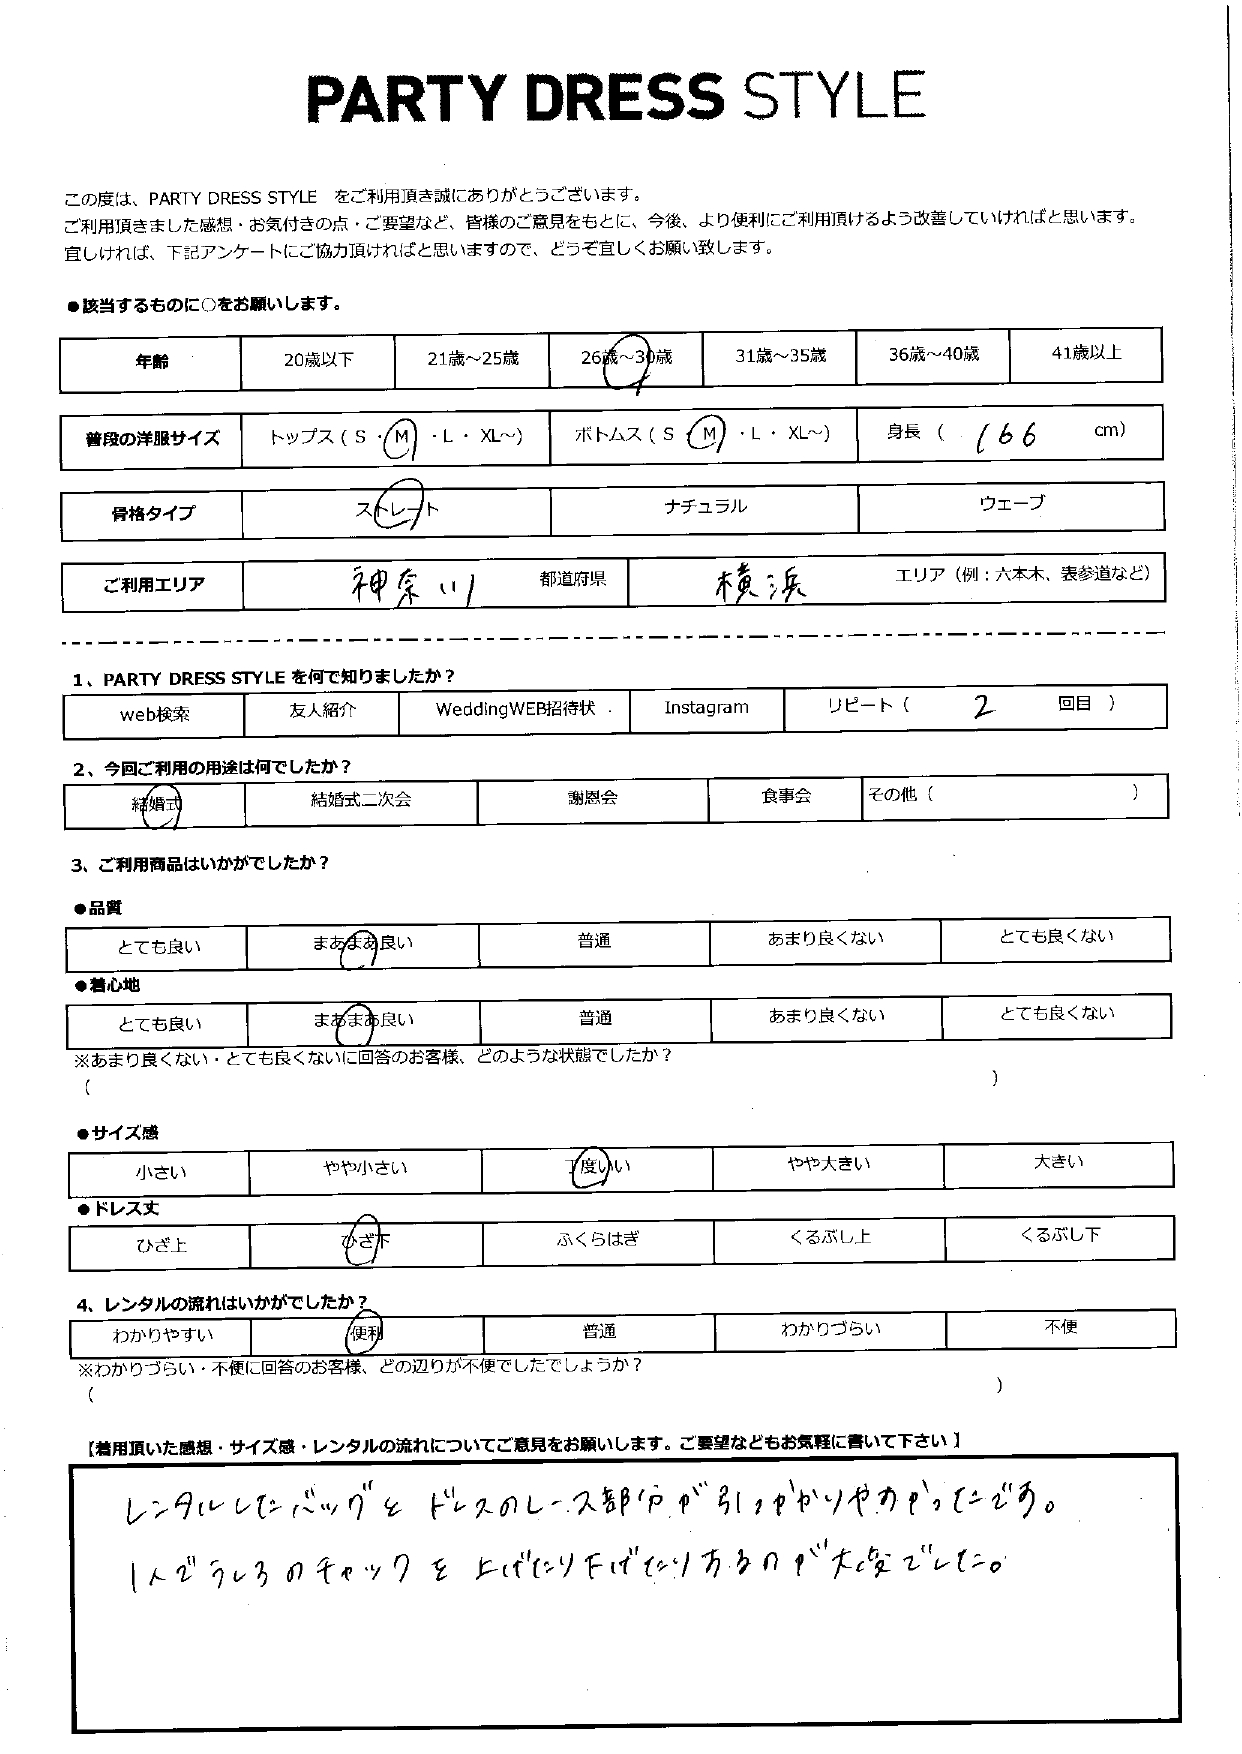 PARTY DRESS STYLE
この度は、PARTY DRESS STYLE をご利用頂き誠にありがとうございます。
ご利用頂きました感想・お気付きの点・ご要望など、皆様のご意見をもとに、今後、より便利にご利用頂けるよう改善していければと思います。
宜しければ、下記アンケートにご協力頂ければと思いますので、どうぞ宜しくお願い致します。
●該当するものに○をお願いします。
年齢 20歳以下 21歳～25歳 26歳～30歳 31歳～35歳 36歳～40歳 41歳以上
普段の洋服サイズ トップス ( S ・ M ・ L ・ XL～) ボトムス ( S ・ M ・ L ・ XL～) 身長 ( 166 cm)
骨格タイプ ストレート ナチュラル ウェーブ
ご利用エリア 神奈川 都道府県 横浜 エリア（例：六本木、表参道など）
1、PARTY DRESS STYLE を何で知りましたか？
web検索 友人紹介 WeddingWEB招待状 Instagram リピート（ 2 回目 ）
2、今回ご利用の用途は何でしたか？
結婚式 結婚式二次会 謝恩会 食事会 その他（ ）
3、ご利用商品はいかがでしたか？
●品質
とても良い まあまあ良い 普通 あまり良くない とても良くない
●着心地
とても良い まあまあ良い 普通 あまり良くない とても良くない
※あまり良くない・とても良くないに回答のお客様、どのような状態でしたか？
( )
●サイズ感
小さい やや小さい 丁度いい やや大きい 大きい
●ドレス丈
ひざ上 ひざ下 ふくらはぎ くるぶし上 くるぶし下
4、レンタルの流れはいかがでしたか？
わかりやすい 便利 普通 わかりづらい 不便
※わかりづらい・不便に回答のお客様、どの辺りが不便でしたでしょうか？
( )
【着用頂いた感想・サイズ感・レンタルの流れについてご意見をお願いします。ご要望などもお気軽に書いて下さい】
レンタルしたバッグとドレスのレース部分が引っかかりやすかったです。
1人でうしろのチャックを上げたり下げたりするのが大変でした。